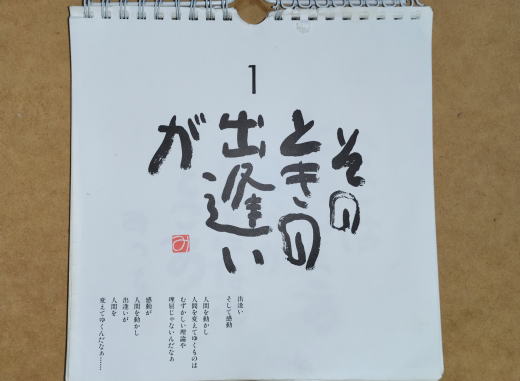 1
その
ときの
出逢い
が
み
出逢い
そして感動
人間を動かし
人間を変えてゆくものは
むずかしい理論や
理屈じゃないんだなあ
感動が
人間を動かし
出逢いが
人間を
変えてゆくんだなあ……